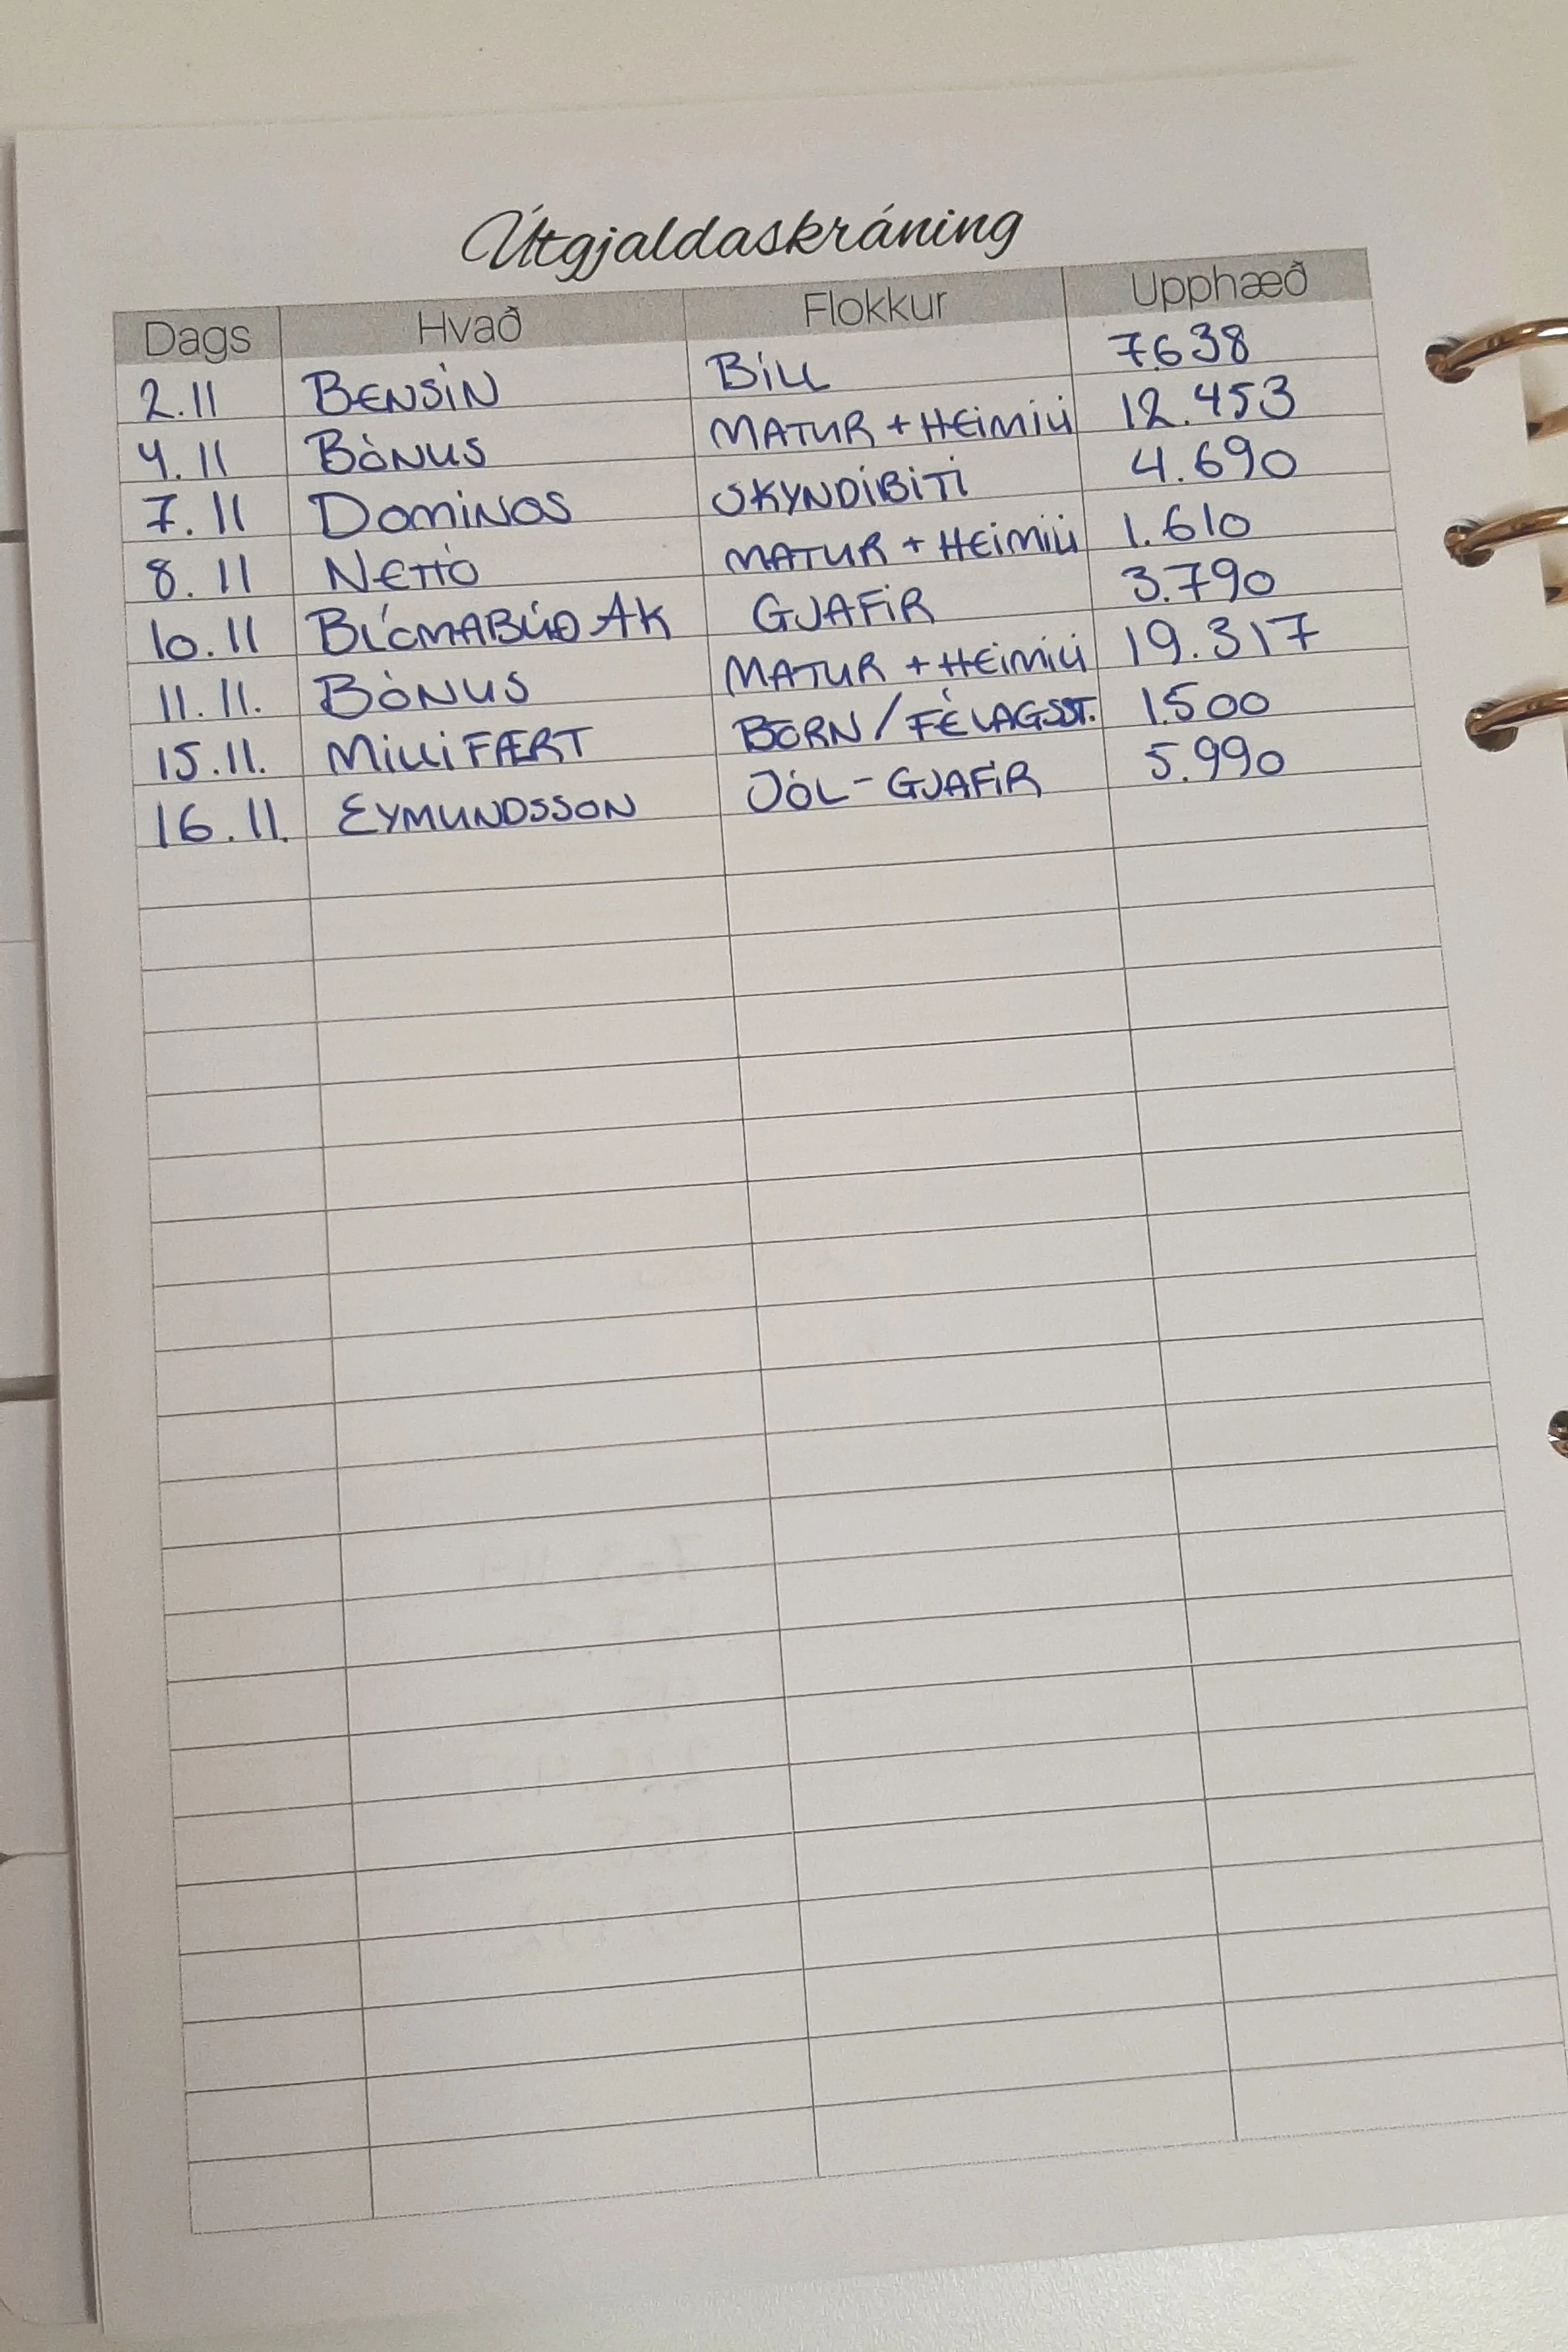 Útgjaldaskráning
Dags Hvað Flokkur Upphæð
2.11 BENSÍN BÍLL 7.638
4.11 BÓNUS MATUR + HEIMILI 12.453
7.11 DOMINOS SKYNDIBITI 4.690
8.11 NETTÓ MATUR + HEIMILI 1.610
10.11 BLÓMABÚÐ AK GJAFIR 3.790
11.11. BÓNUS MATUR + HEIMILI 19.317
15.11. MILLIFÆRT BÖRN/FÉLAGSST. 1.500
16.11. EYMUNDSSON JÓL-GJAFIR 5.990